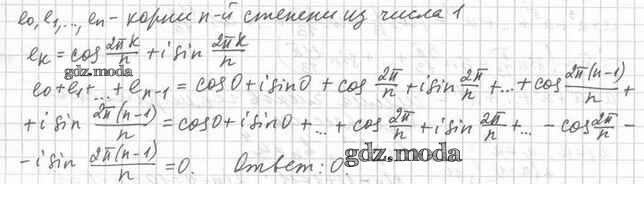 e₀, e₁, ..., eₙ - корни n-й степени из числа 1
eₖ = cos 2πk/n + i sin 2πk/n
gdz.moda
e₀ + e₁ + ... + eₙ₋₁ = cos0 + i sin0 + cos 2π/n + i sin 2π/n + ... + cos 2π(n-1)/n +
+ i sin 2π(n-1)/n = cos0 + i sin0 + ... + cos 2π/n + i sin 2π/n + ... - cos 2π/n -
- i sin 2π(n-1)/n = 0. Ответ: 0.
gdz.moda